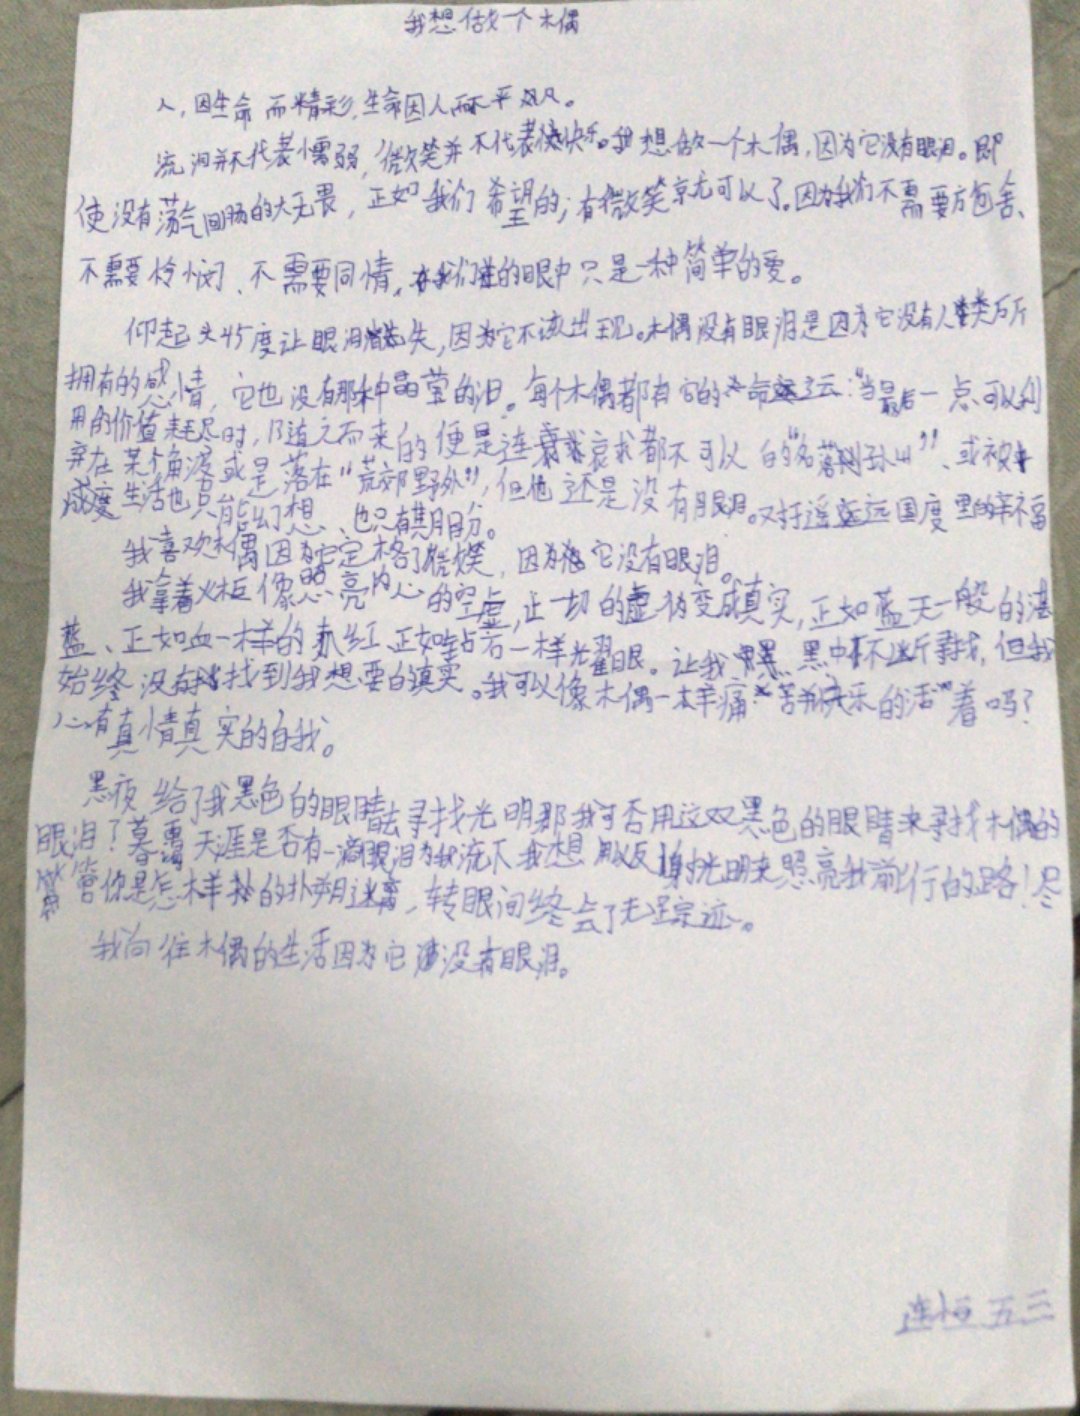 我想做一个木偶
人,因生命而精彩,生命因人而不平凡。
流泪并不代表懦弱,微笑并不代表快乐。我想做一个木偶,因为它没有眼泪。即
使没有荡气回肠的大无畏,正如我们希望的;有微笑就可以了。因为我们不需要方包容、
不需要怜悯、不需要同情,在我们的眼中只是一种简单的爱。
仰起头45度让眼泪消失,因为它不该出现。木偶没有眼泪是因为它没有人类所
拥有的感情,它也没有那种晶莹的泪。每个木偶都有它的命运:当最后一点可以利
用的价值耗尽时,随之而来的便是连哀求都不可以的"名落孙山"、或被
弃在某个角落或是落在"荒郊野外",但他还是没有眼泪。对于遥远国度里的幸福
生活也只能幻想、也只有期盼。
我喜欢木偶因为它定格了微笑,因为它没有眼泪。
我拿着火柜像照亮内心的空虚,让一切的虚伪变成真实,正如蓝天一般的湛
蓝、正如血一样的红、正如钻石一样光耀眼。让我黑中不断寻找,但我
始终没有找到我想要的真实。我可以像木偶一样痛苦并快乐的活着吗?
心有真情真实的自我。
黑夜给了我黑色的眼睛去寻找光明那我可否用这双黑色的眼睛来寻找木偶的
眼泪?蓦天涯是否有一滴眼泪为我流下我想用以反射光明来照亮我前行的路!尽
管你是怎样的扑朔迷离,转眼间终会了无踪迹。
我向往木偶的生活因为它没有眼泪。
连恒 五三